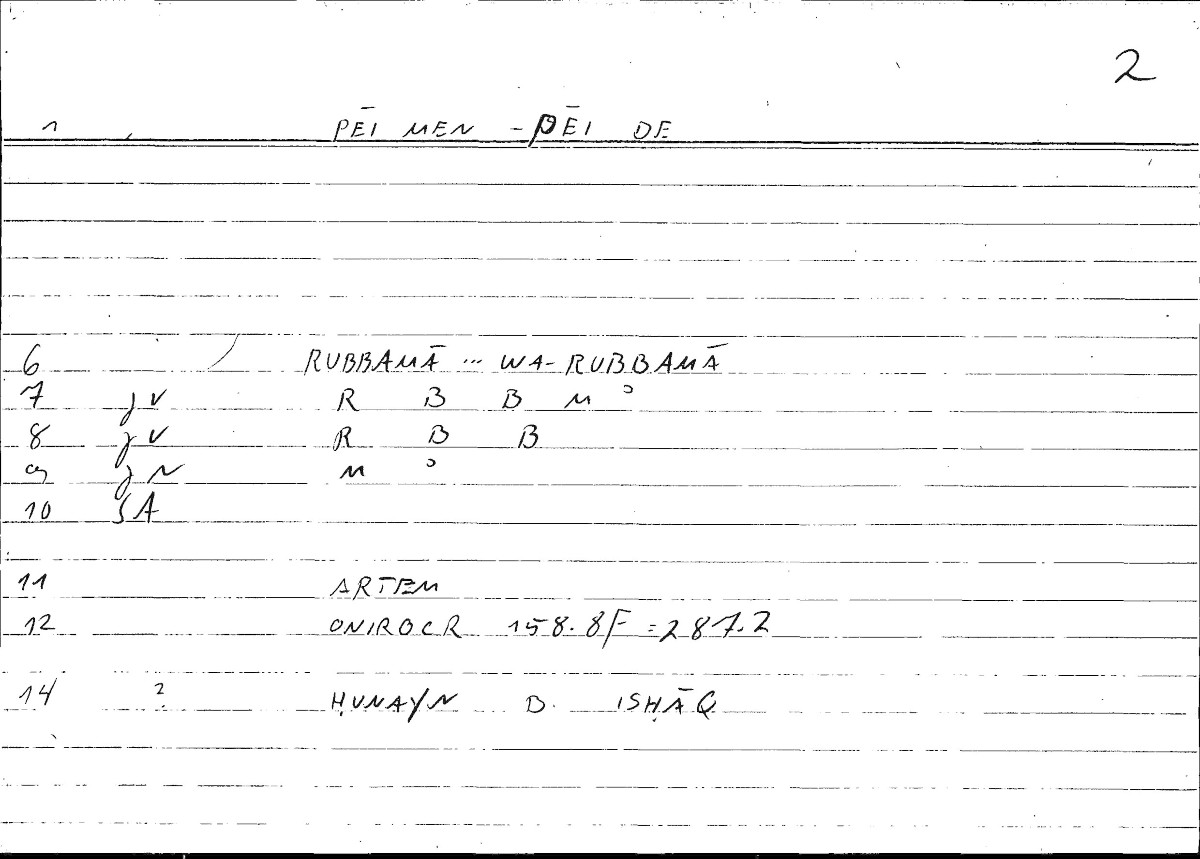 2
1 PĒI MEN - PĒI DE
6 RUBBAMĀ ... WA-RUBBAMĀ
7 JV R B B M ᵓ
8 JV R B B
9 JN M ᵓ
10 SA
11 ARTEM
12 ONIROCR 158.8F = 287.2
14 ? ḤUNAYN B. ISḤĀQ